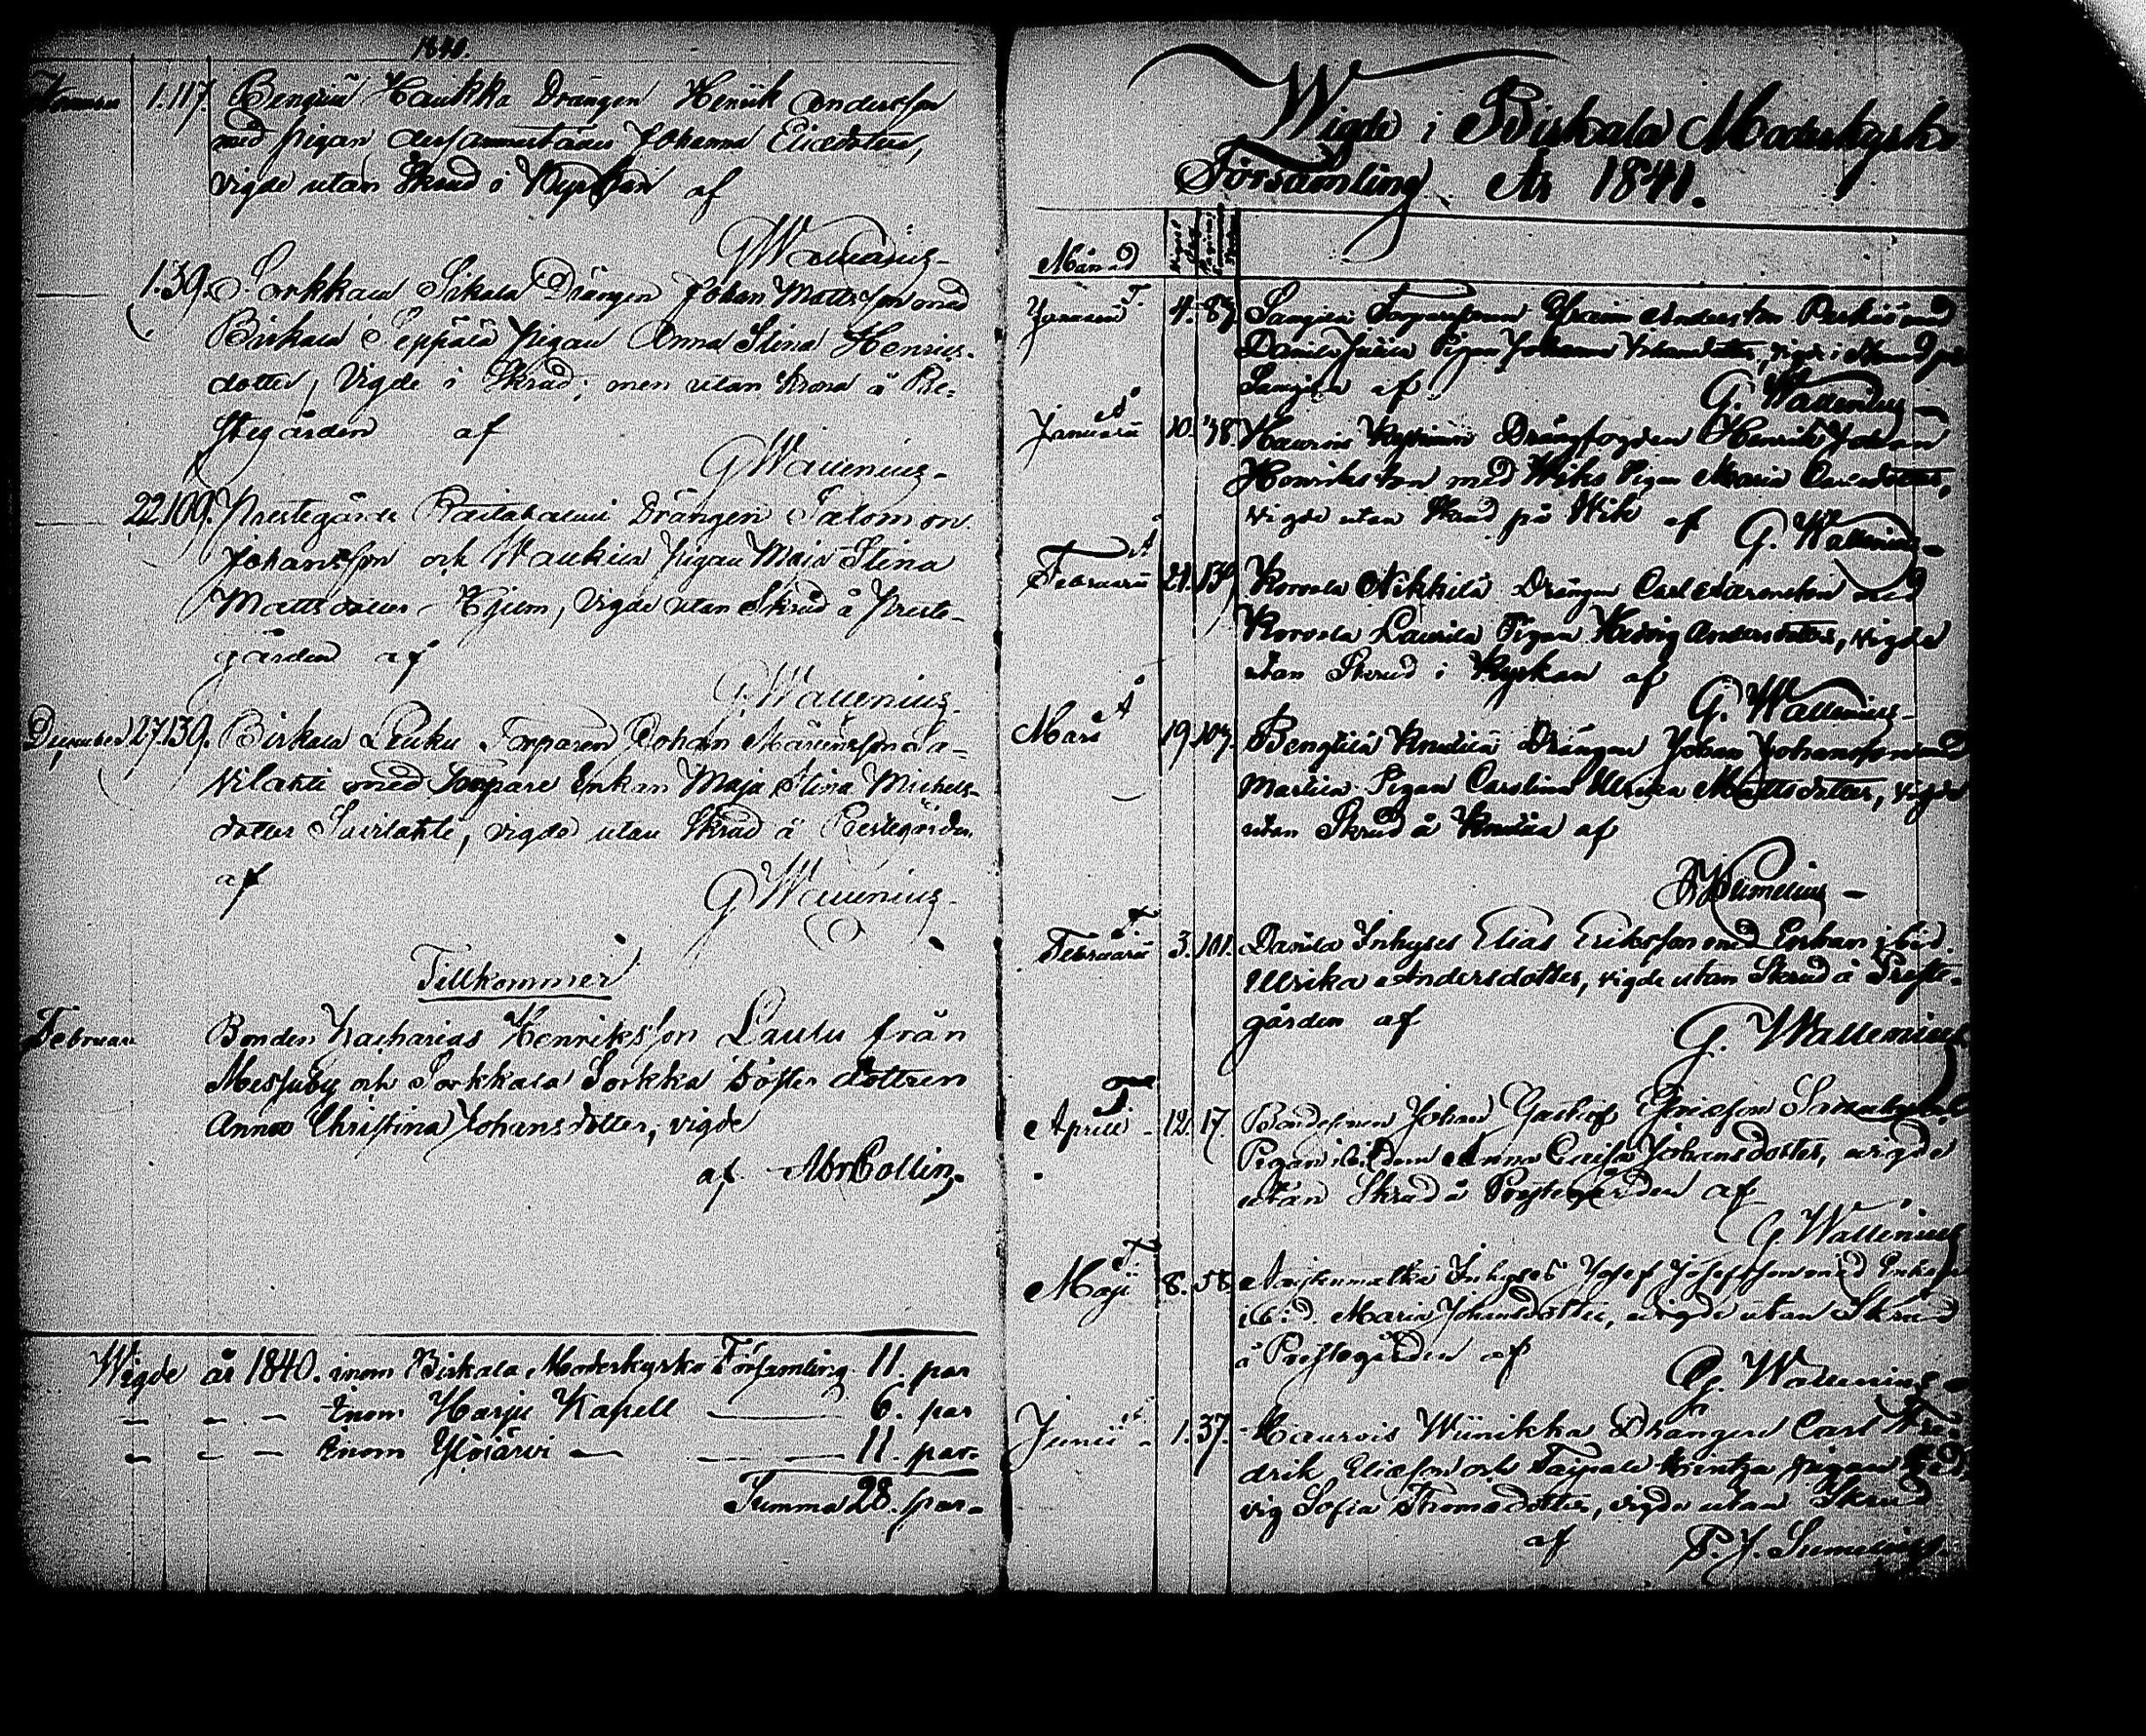 1840.
1. 117. Bengtilä Haukka Drängen Henrik Andersson
med pigan dersammastädes Johanna Eliædotter,
vigde utan Skrud i Kyrkan af
G Wallenius
1. 39. Sorkkala Sikala Drängen Johan Mattsson med
Birkala Seppälä pigan Anna Stina Henriks-
dotter, Vigde i Skrud; men utan krona å Pre-
stegården af
G Wallenius
22. 109. Prestegårds Drängen Salomon
Johansson och Haukila pigan Maja Stina
Mattsdotter Hjelm, Vigde utan Skrud å Preste-
gården af
G. Wallenius
December 27. 139. Birkala Leuku Torparen Johan
med Torpare Enkan Maja Stina Michels-
dotter Savilahti, vigde utan Skrud å Prestegården
af
G Wallenius
Tillkommer
Februari Bonden Zacharias Henriksson Laulu från
Messuby och Sorkkala Sorkka böster dottren
Anna Christina Johansdotter, vigde
af Abr Collin.
Wigde år 1840. inom Birkala Moderkyrko Församling 11. par
— — — Inom Harju Kapell — 6. par
— — — Inom Ylöjärvi — 11. par
Summa 28. par
Wigde i Birkala Moderkyrko
Församling År 1841.
Månad
Januarii 4. 87. Johansdotter, vigde i Skrud på
af G. Wallenius
Januarii 10. 38. Haurois Drängfogden Henrik Johan
Henriksson med Wiks Pigan Maria
vigde utan Skrud på Wik af G. Wallenius
Februarii 21. 139. Korvola Nikkilä Drängen Carl Aaronsson med
Korvola Laurila Pigan Hedvig Andersdotter, vigde
utan Skrud i Kyrkan af
G. Wallenius
Mars 19. 107. Bengtilä Knutila Drängen Johan Johansson med
Martila Pigan Carolina Ulrika Mattsdotter, vigde
utan Skrud å Knutila af
Sumelius
Februarii 3. 101. Danila Inhyses Elias Eriksson med Enkan ibid.
Ulrika Andersdotter, vigde utan Skrud å Preste-
gården af
G. Wallenius
Aprill 12. 17. Bondesonen Johan Gustaf Ericsson
Pigan ibidem Anna Caisa Johansdotter, vigde
utan Skrud å Prestegården af
G. Wallenius
Maji 8. 58. Inhyses Josef Josefsson med Enkan
ibid. Maria Johansdotter, vigde utan Skrud
å Prestegården af
G. Wallenius
Junii 1. 37. Haurois Wiinikka Drängen Carl Fre-
drik Eliasson och Taipale Hintza pigan Hed-
vig Sofia Thomasdotter, vigde utan Skrud
af P. J. Sumelius